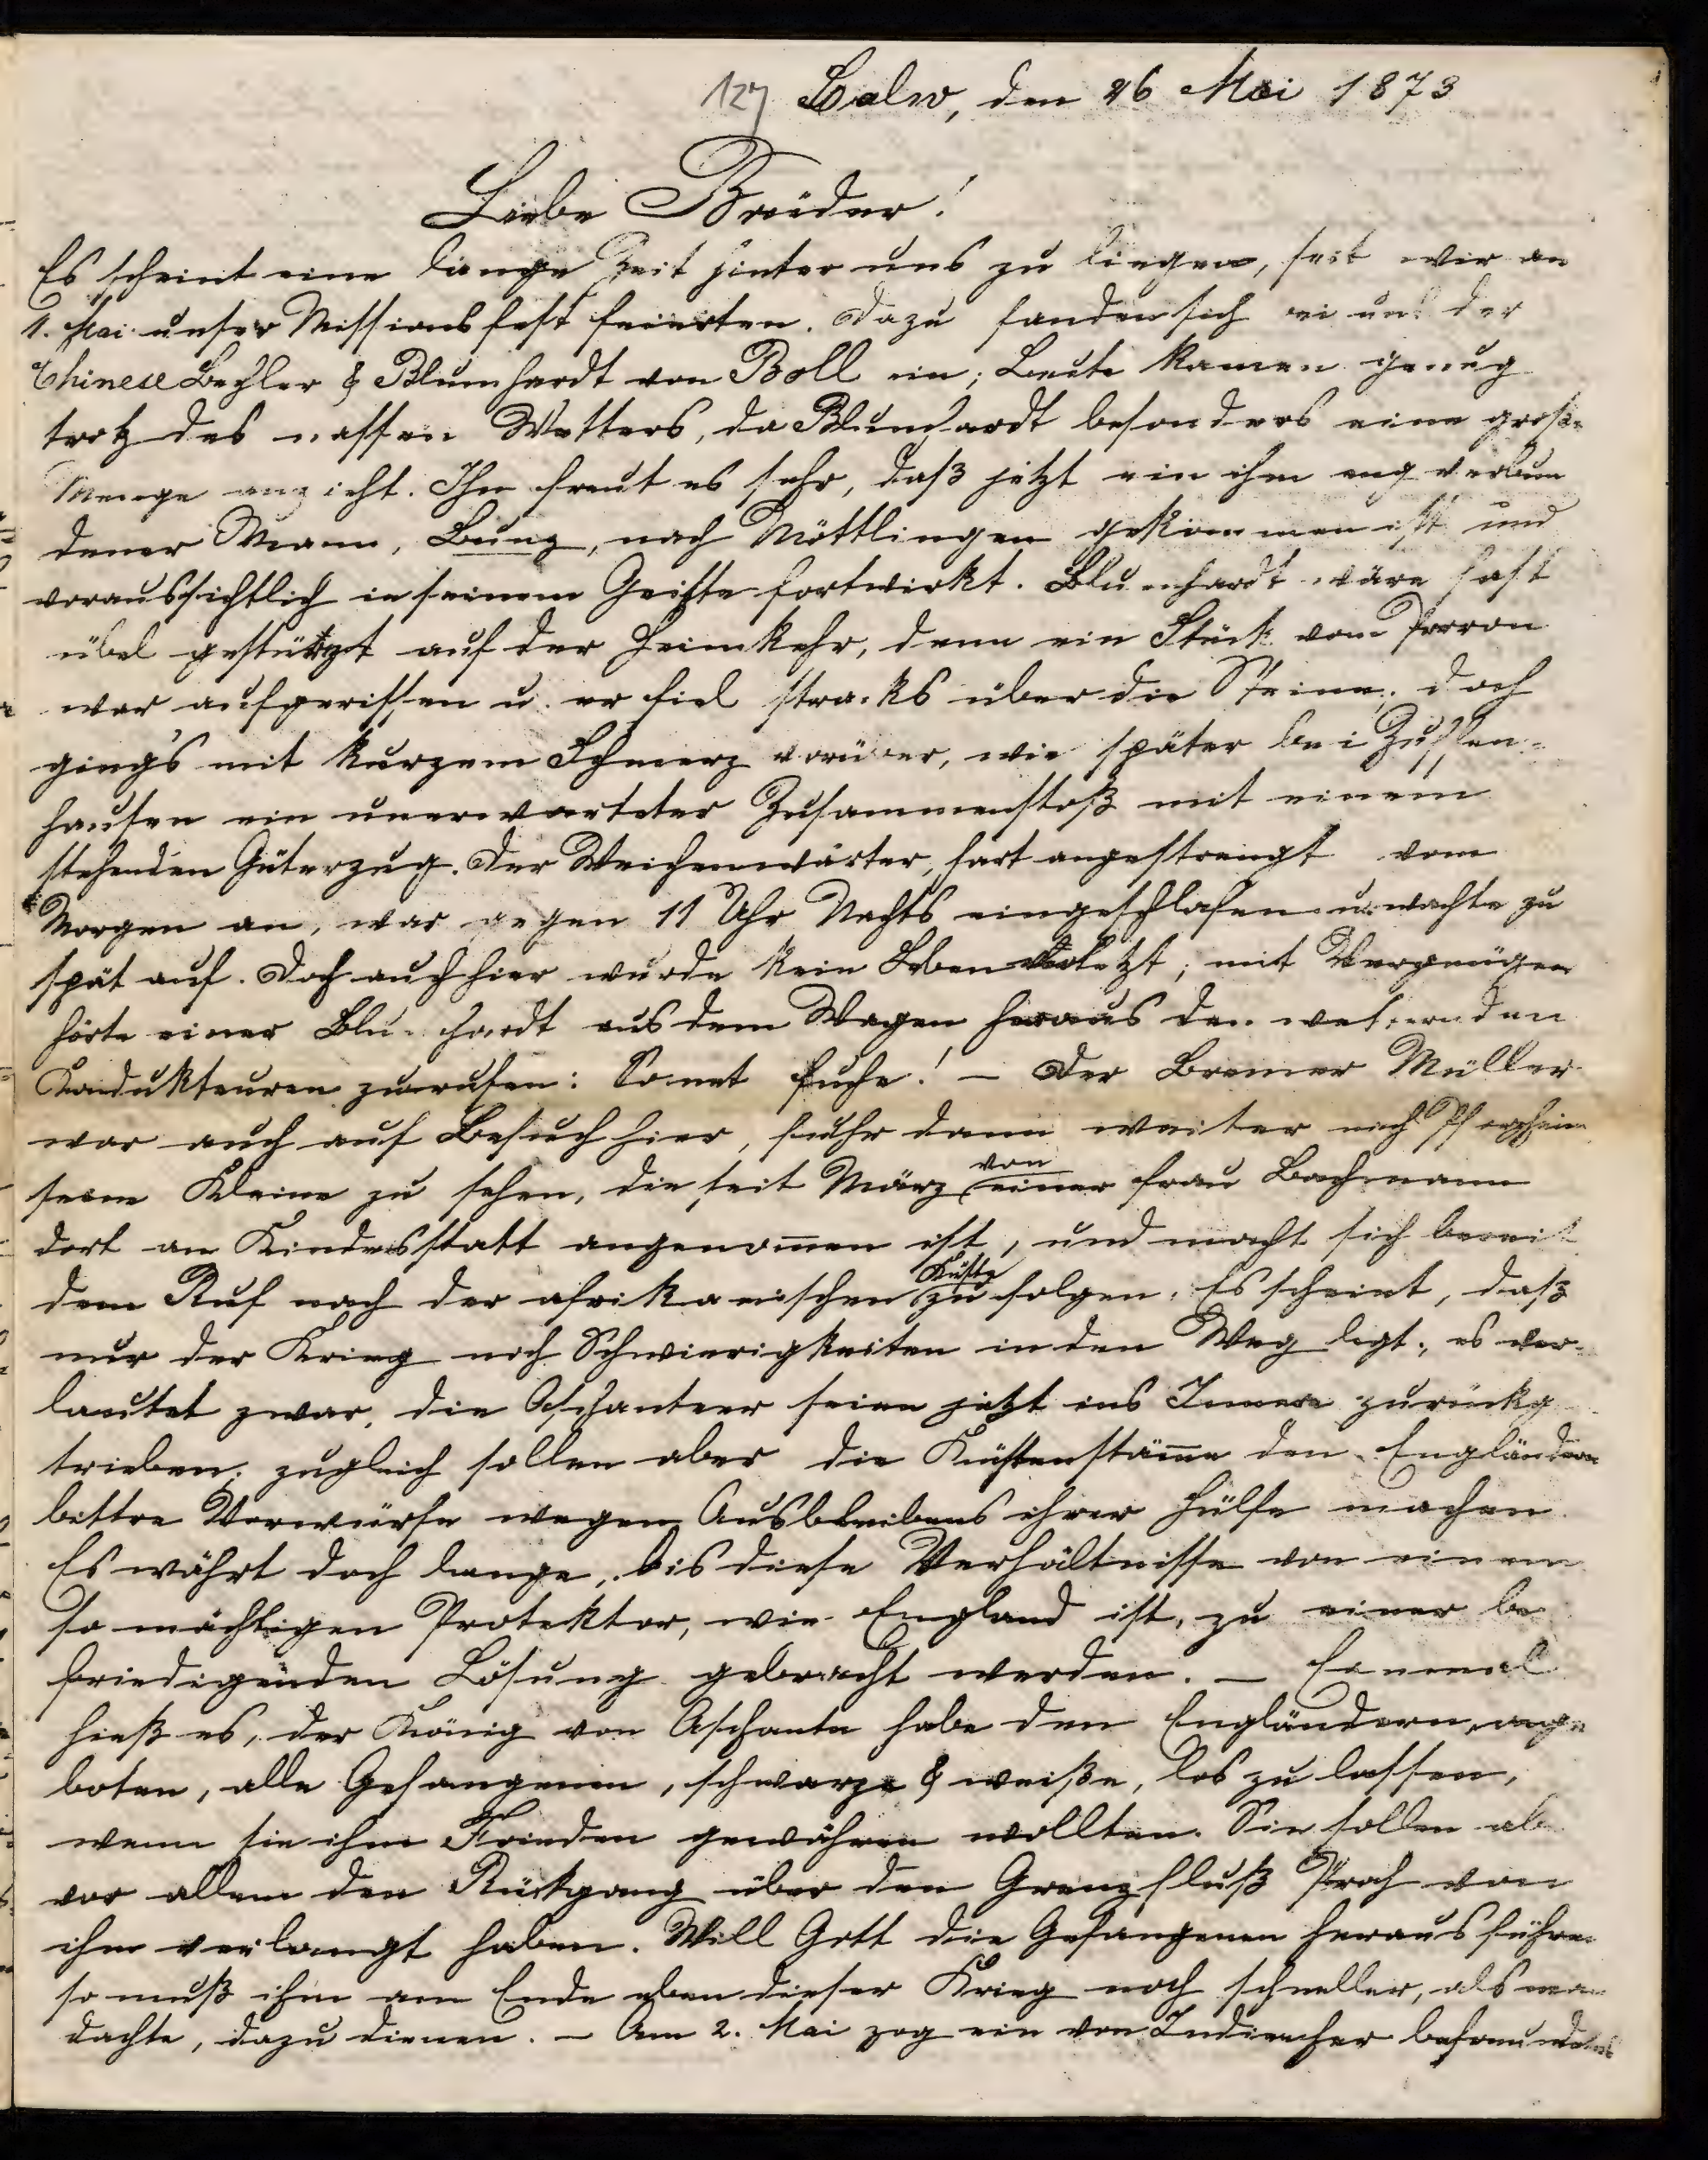 127 Calw, den 26 Mai 1873
Liebe Brüder!
Es scheint eine lange Zeit hinter uns zu liegen, seit wir an
1. Mai unser Missionsfest feierten. Dazu fanden sich bei uns der
Chinese Lechler & Blumhardt von Boll ein; Leute kamen genug
trotz des nassen Wetters, da Blumhardt besonders eine große
Menge anzieht. Ihn freut es sehr, daß jetzt ein ihm eng verbun
dener Mann, Bunz, nach Möttlingen gekommen ist und
voraussichtlich in seinem Geiste fortwirkt. Blumhardt wäre fast
übel gestürzt auf der Heimkehr, denn ein Stück vom Perron
war aufgerissen u. er fiel stracks über die Steine; doch
ging's mit kurzem Schmerz vorüber, wie später bei Zuffen-
hausen ein unerwarteter Zusammenstoß mit einem
stehenden Güterzug. Der Weichenwärter, hart angestrengt vom
Morgen an, war gegen 11 Uhr Nachts eingeschlafen u. wachte zu
spät auf. Doch auch hier wurde kein Leben verletzt; mit Vergnügen
hörte einer Blumhardt aus dem Wagen heraus den wetternden
Kondukteuren zurufen: So net fuche! – Der Bremer Müller
war auch auf Besuch hier, fuhr dann weiter nach Pforzheim
seine Kleine zu sehen, die seit März von einer Frau Bachmann
dort an Kindesstatt angenommen ist, und macht sich bereit
dem Ruf nach der afrikanischen Küste zu folgen. Es scheint, daß
nur der Krieg noch Schwierigkeiten in den Weg legt; es ver-
lautet zwar, die Aschanteer seien jetzt ins Innere zurückg
trieben; zugleich sollen aber die Küstenstämme den Engländern
bittre Vorwürfe wegen Ausbleibens ihrer Hülfe machen.
Es währt doch lange, bis diese Verhältnisse von einem
so mächtigen Protektor, wie England ist, zu einer be
friedigenden Lösung gebracht werden. – Einmal
hieß es, der König von Aschante habe den Engländern ange
boten, alle Gefangenen, schwarze & weiße, los zu lassen,
wenn sie ihm Frieden gewähren wollten. Sie sollen ab
vor allem den Rückgang über den Grenzfluß Prah von
ihm verlangt haben. Will Gott die Gefangenen herausführen
so muß ihm am Ende eben dieser Krieg noch schneller, als man
dachte, dazu dienen. – Am 2. Mai zog ein von Indien her befreundetes